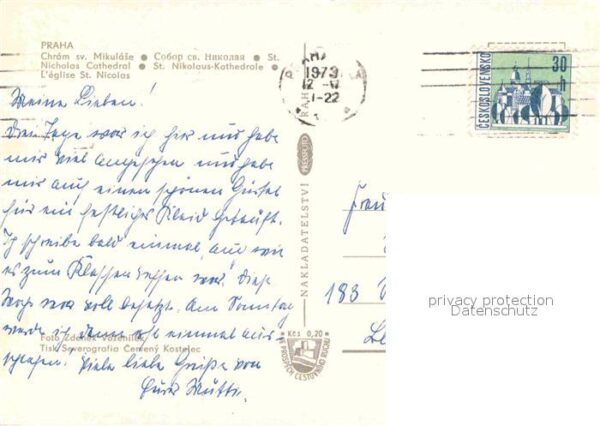 PRAHA
Chrám sv. Mikuláše ● Собор св. Николая ● St.
Nicholas Cathedral ● St. Nikolaus-Kathedrale ●
L'église St. Nicolas
PRAHA
1973
-22
ČESKOSLOVENSKO
30
h
Meine Lieben!
Drei Tage war ich hier und habe
mir viel angesehen und habe
mir auch einen schönen Gürtel
für ein festliches Kleid gekauft.
Ich schreibe bald einmal, auch wie
es zum Klassentreffen war! Diese
Woche war voll besetzt. Am Sonntag
werde ich dann erst einmal aus-
schlafen. Viele liebe Grüße von
Eurer Mutti.
Foto Zdenek
Tisk Severografia Červený Kostelec
PRESSFOTO
NAKLADATELSTVÍ
Kčs 0,20
VE PROSPĚCH CESTOVNÍHO RUCHU
183
privacy protection
Datenschutz